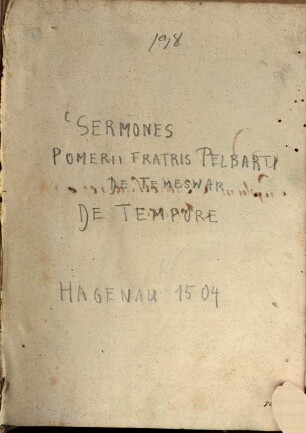 198
SERMONES
POMERII FRATRIS PELBARTI
DE TEMESWAR
DE TEMPORE
HAGENAU 1504